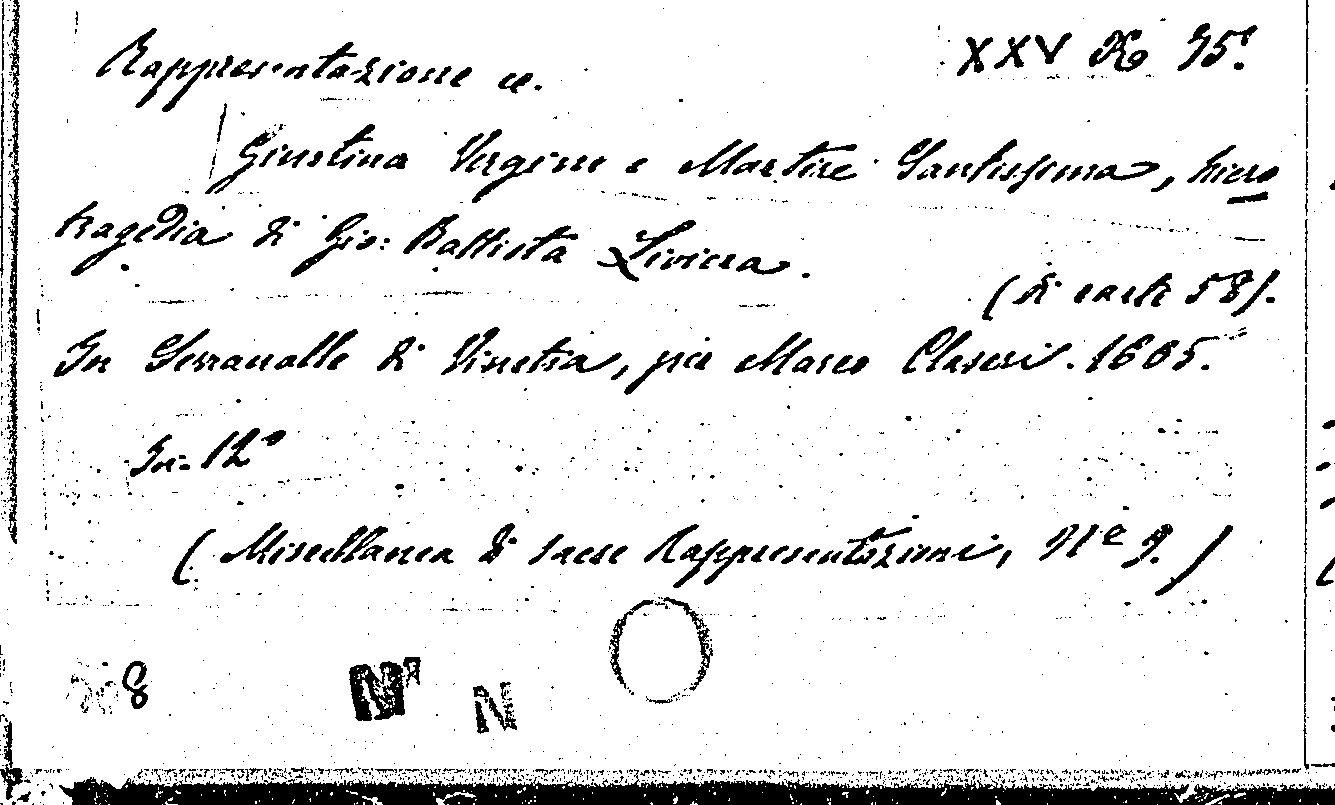 Rappresentazione ec.
XXV 95.
Giustina Vergine e Martire Santissima, hiero
tragedia di Gio: Battista Liviera.
(di carte 58).
In Serravalle di Vinetia, per Marco Claseri. 1605.
In-12°
(Miscellanea di sacre Rappresentazioni, N° 9.)
8
N N